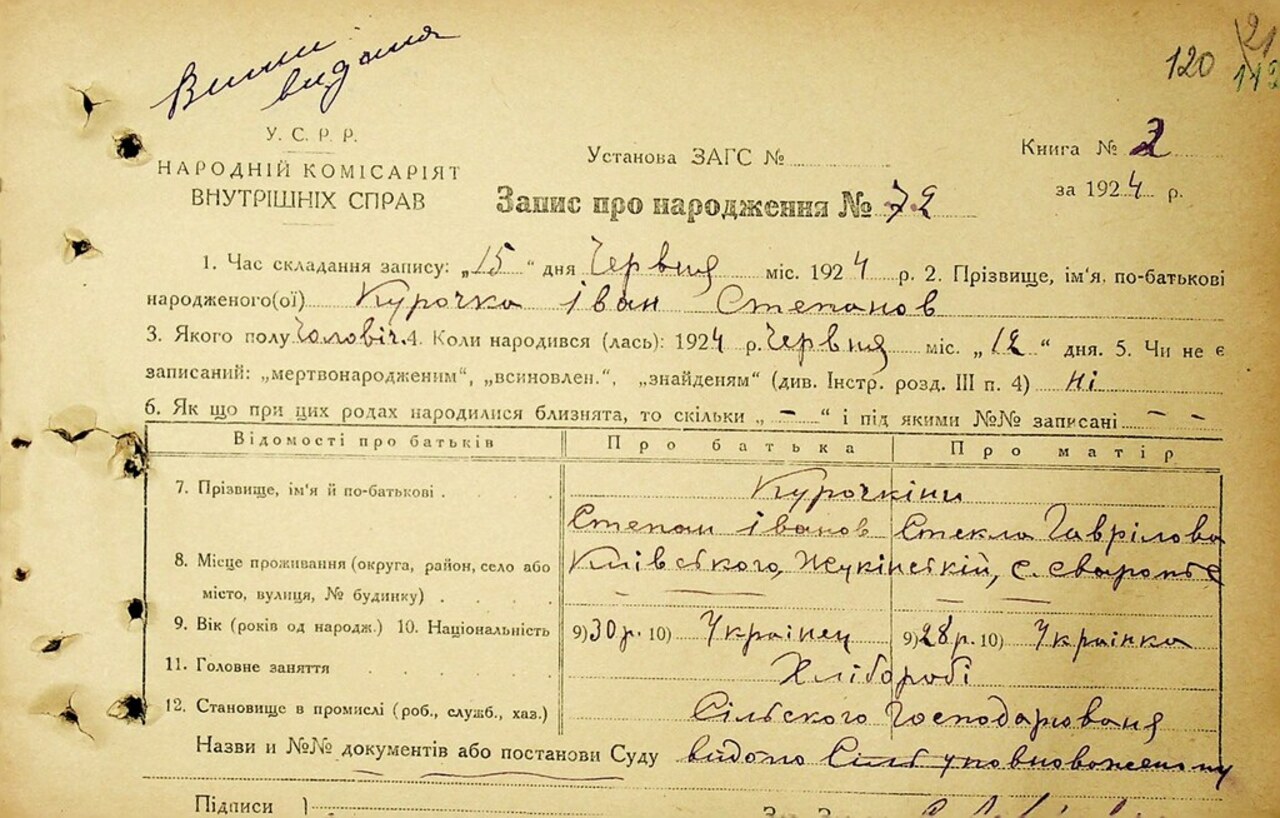 видана
120 21
142
У. С. Р. Р.
НАРОДНІЙ КОМІСАРІЯТ
ВНУТРІШНІХ СПРАВ
Установа ЗАГС №
Книга № 2
за 1924 р.
Запис про народження № 72
1. Час складання запису: „15“ дня Червня міс. 1924 р. 2. Прізвище, ім'я, по-батькові
народженого(ої) Курочка Іван Степанов
3. Якого полу Чоловіч. 4. Коли народився (лась): 1924 р. Червня міс. „12“ дня. 5. Чи не є
записаний: „мертвонародженим“, „всиновлен.“, „знайденям“ (див. Інстр. розд. III п. 4) ні
6. Як що при цих родах народилися близнята, то скільки „ – “ і під якими №№ записані – –
Відомості про батьків Про батька Про матір
7. Прізвище, ім'я й по-батькові Курочкіни
Степан Іванов Стекла Гаврілова
8. Місце проживання (округа, район, село або Київського, Жукінській, с.
місто, вулиця, № будинку)
9. Вік (років од народж.) 10. Національність 9) 30 р. 10) Українец 9) 28 р. 10) Українка
11. Головне заняття Хлібаробі
12. Становище в промислі (роб., служб., хаз.) Сільского Господарюваня
Назви и №№ документів або постанови Суду видопо Сіль уповновоженому
Підписи